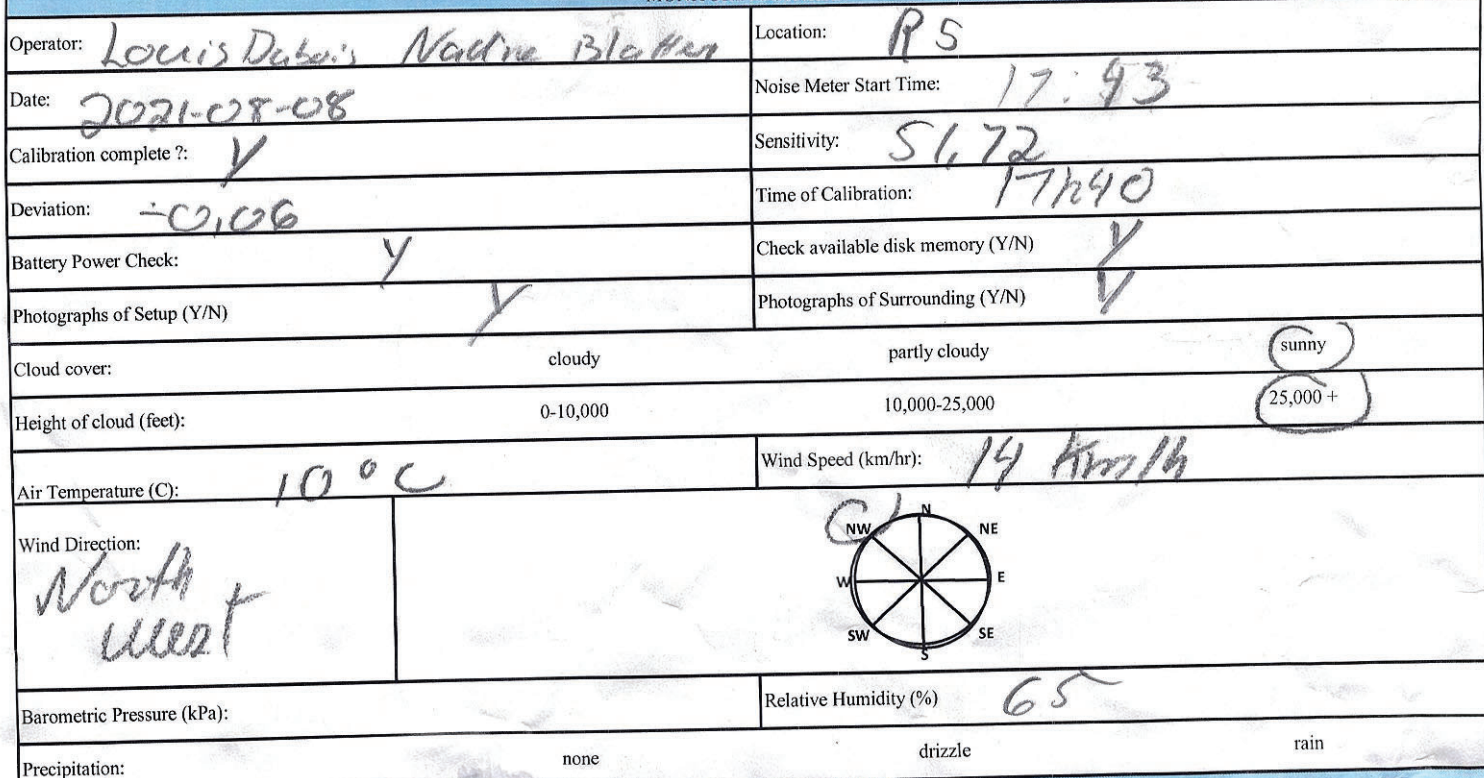 Operator: Louis Dubois Nadine Blatter Location: R5
Date: 2021-08-08 Noise Meter Start Time: 17:43
Calibration complete ?: Y Sensitivity: 51,72
Deviation: -0,06 Time of Calibration: 17h40
Battery Power Check: Y Check available disk memory (Y/N) Y
Photographs of Setup (Y/N) Y Photographs of Surrounding (Y/N) Y
Cloud cover: cloudy partly cloudy sunny
Height of cloud (feet): 0-10,000 10,000-25,000 25,000 +
Air Temperature (C): 10 °C Wind Speed (km/hr): 14 Km/h
Wind Direction:
North
West
N
NW NE
W E
SW SE
S
Barometric Pressure (kPa): Relative Humidity (%) 65
Precipitation: none drizzle rain